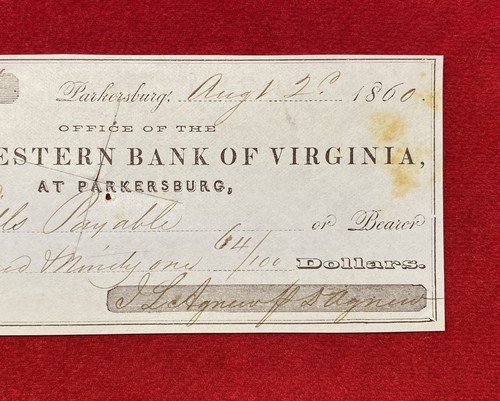 Parkersburg, Augt 2d 1860.
OFFICE OF THE
ESTERN BANK OF VIRGINIA,
AT PARKERSBURG,
lls Payable or Bearer
ed & Ninety one 64/100 Dollars.
J L Agnew D Agnew